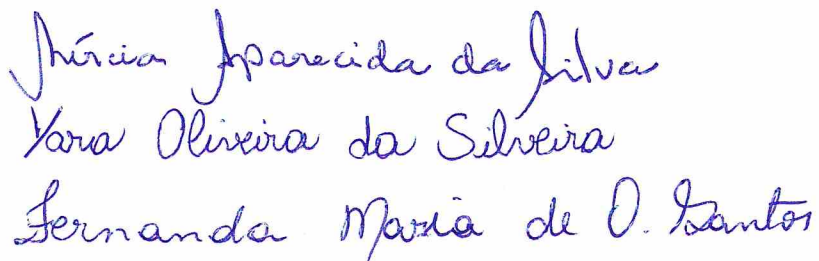 Mírcia Aparecida da Silva
Yara Oliveira da Silveira
Fernanda Maria de O. Santos